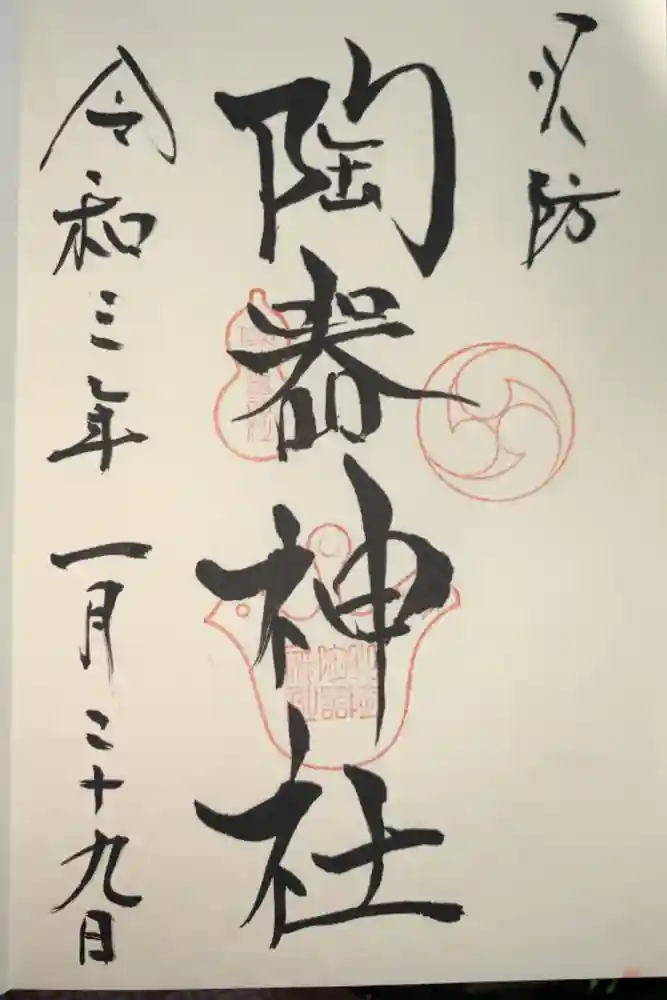 火防
陶器神社
令和三年一月二十九日